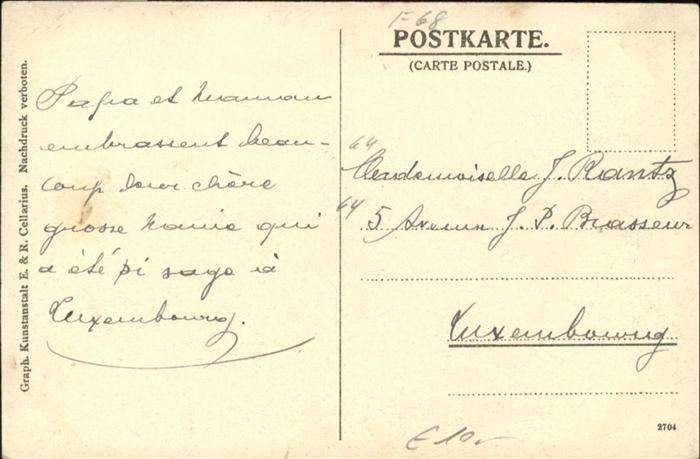 F-68
POSTKARTE.
(CARTE POSTALE.)
Graph. Kunstanstalt E. & R. Cellarius. Nachdruck verboten.
Papa et Maman
embrassent beau-
coup leur chère
grosse qui
a été si sage à
Luxembourg.
64
Mademoiselle J. Rantz
64
5 Avenue J. P. Brasseur
Luxembourg
£10.-
2704